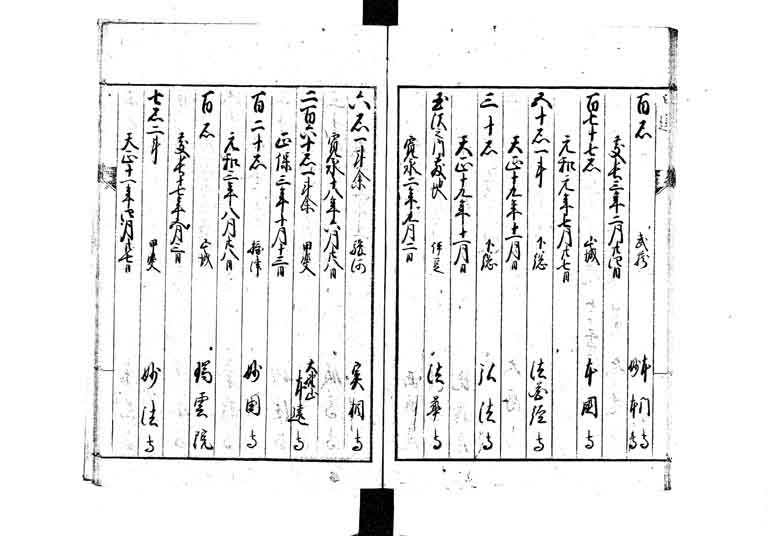 百石 武蔵 本門寺
妙本寺
慶長三年二月廿四日
百七十七石 山城 本國寺
元和元年七月廿七日
五十石一斗 下総 法花経寺
天正十九年十一月日
三十石 下総 弘法寺
天正十九年十一月日
伊豆 法華寺
寛永二年九月二日
六石一斗余 駿河 実相寺
寛永十八年 月廿八日
二百六十石一斗余 甲斐 本遠寺
正保三年十月十三日
百二十石 摂津 妙国寺
元和三年八月廿八日
百石 山城 瑞雲院
慶長十七年 月二日
七石二斗 甲斐 妙法寺
天正十一年四月廿七日